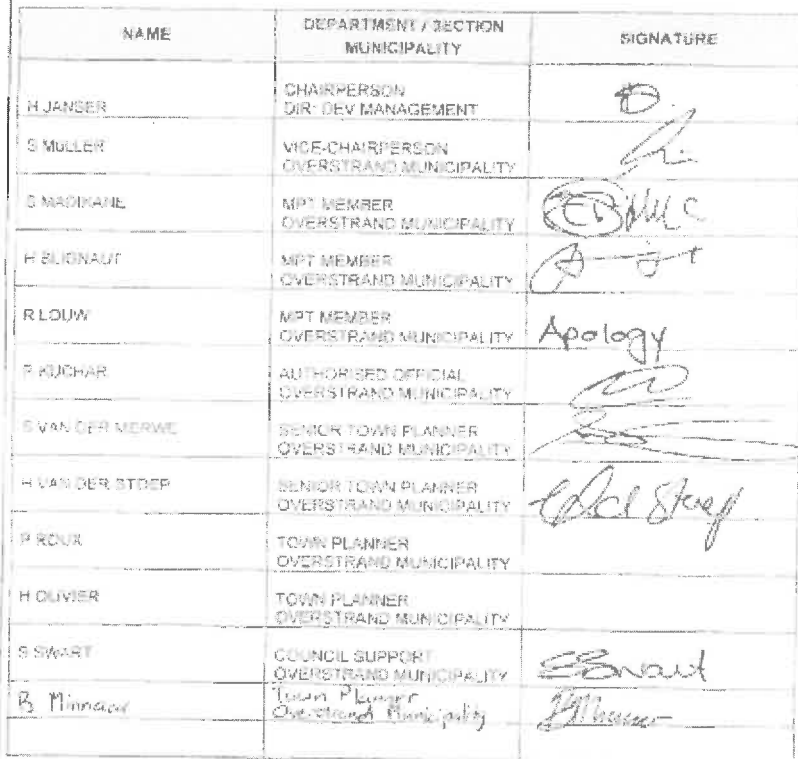 NAME
DEPARTMENT / SECTION
MUNICIPALITY
SIGNATURE
H JANSER
CHAIRPERSON
DIR: DEV MANAGEMENT
S MULLER
VICE-CHAIRPERSON
OVERSTRAND MUNICIPALITY
S MADIKANE
MPT MEMBER
OVERSTRAND MUNICIPALITY
H BLIGNAUT
MPT MEMBER
OVERSTRAND MUNICIPALITY
R LOUW
MPT MEMBER
OVERSTRAND MUNICIPALITY
Apology
R KUCHAR
AUTHORISED OFFICIAL
OVERSTRAND MUNICIPALITY
S VAN DER MERWE
SENIOR TOWN PLANNER
OVERSTRAND MUNICIPALITY
H VAN DER STOEP
SENIOR TOWN PLANNER
OVERSTRAND MUNICIPALITY
P ROUX
TOWN PLANNER
OVERSTRAND MUNICIPALITY
H OLIVIER
TOWN PLANNER
OVERSTRAND MUNICIPALITY
S SWART
COUNCIL SUPPORT
OVERSTRAND MUNICIPALITY
SSwart
B Minnaar
Town Planner
Overstrand Municipality